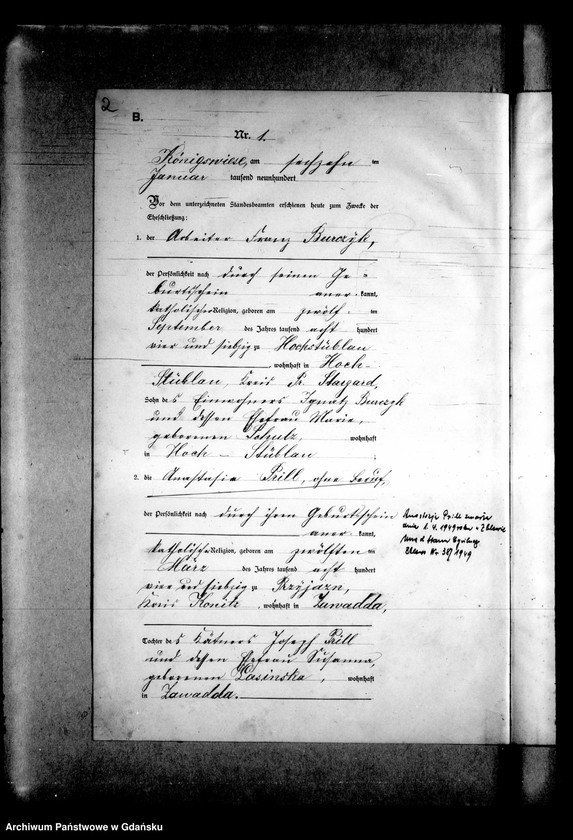 2
B.
Nr. 1.
Königswiese, am sechzehn ten
Januar tausend neunhundert
Vor dem unterzeichneten Standesbeamten erschienen heute zum Zwecke der
Eheschließung:
1. der Arbeiter Franz Burczyk,
der Persönlichkeit nach durch seinen Ge-
burtsschein aner kannt,
katholischer Religion, geboren am zwölf ten
September des Jahres tausend acht hundert
vier und siebzig zu Hochstüblau
, wohnhaft in Hoch-
Stüblau, Kreis Pr. Stargard,
Sohn des Einwohners Ignatz Burczyk
und dessen Ehefrau Marie,
geborenen Schulz, wohnhaft
in Hoch-Stüblau ;
2. die Anastasia Prill, ohne Beruf,
der Persönlichkeit nach durch ihren Geburtsschein
aner kannt,
katholischer Religion, geboren am zwölften ten
März des Jahres tausend acht hundert
vier und siebzig zu Przyjazn,
Kreis Konitz, wohnhaft in Zawadda,
Tochter des Kätners Joseph Prill
und dessen Ehefrau Susanna,
geborenen Lasinska, wohnhaft
in Zawadda.
Anastazja Prill zmarła
dnia 4. 1949 roku w Zblewie
Zblewo Nr. 38/1949
Archiwum Państwowe w Gdańsku